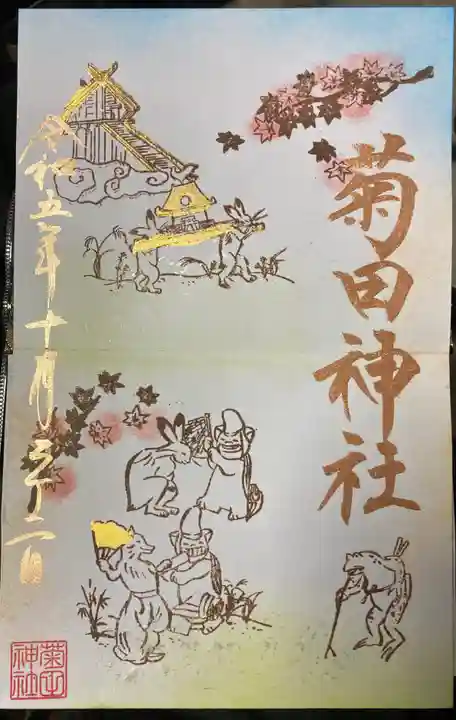 菊田神社
令和五年十月三十一日
菊田
神社